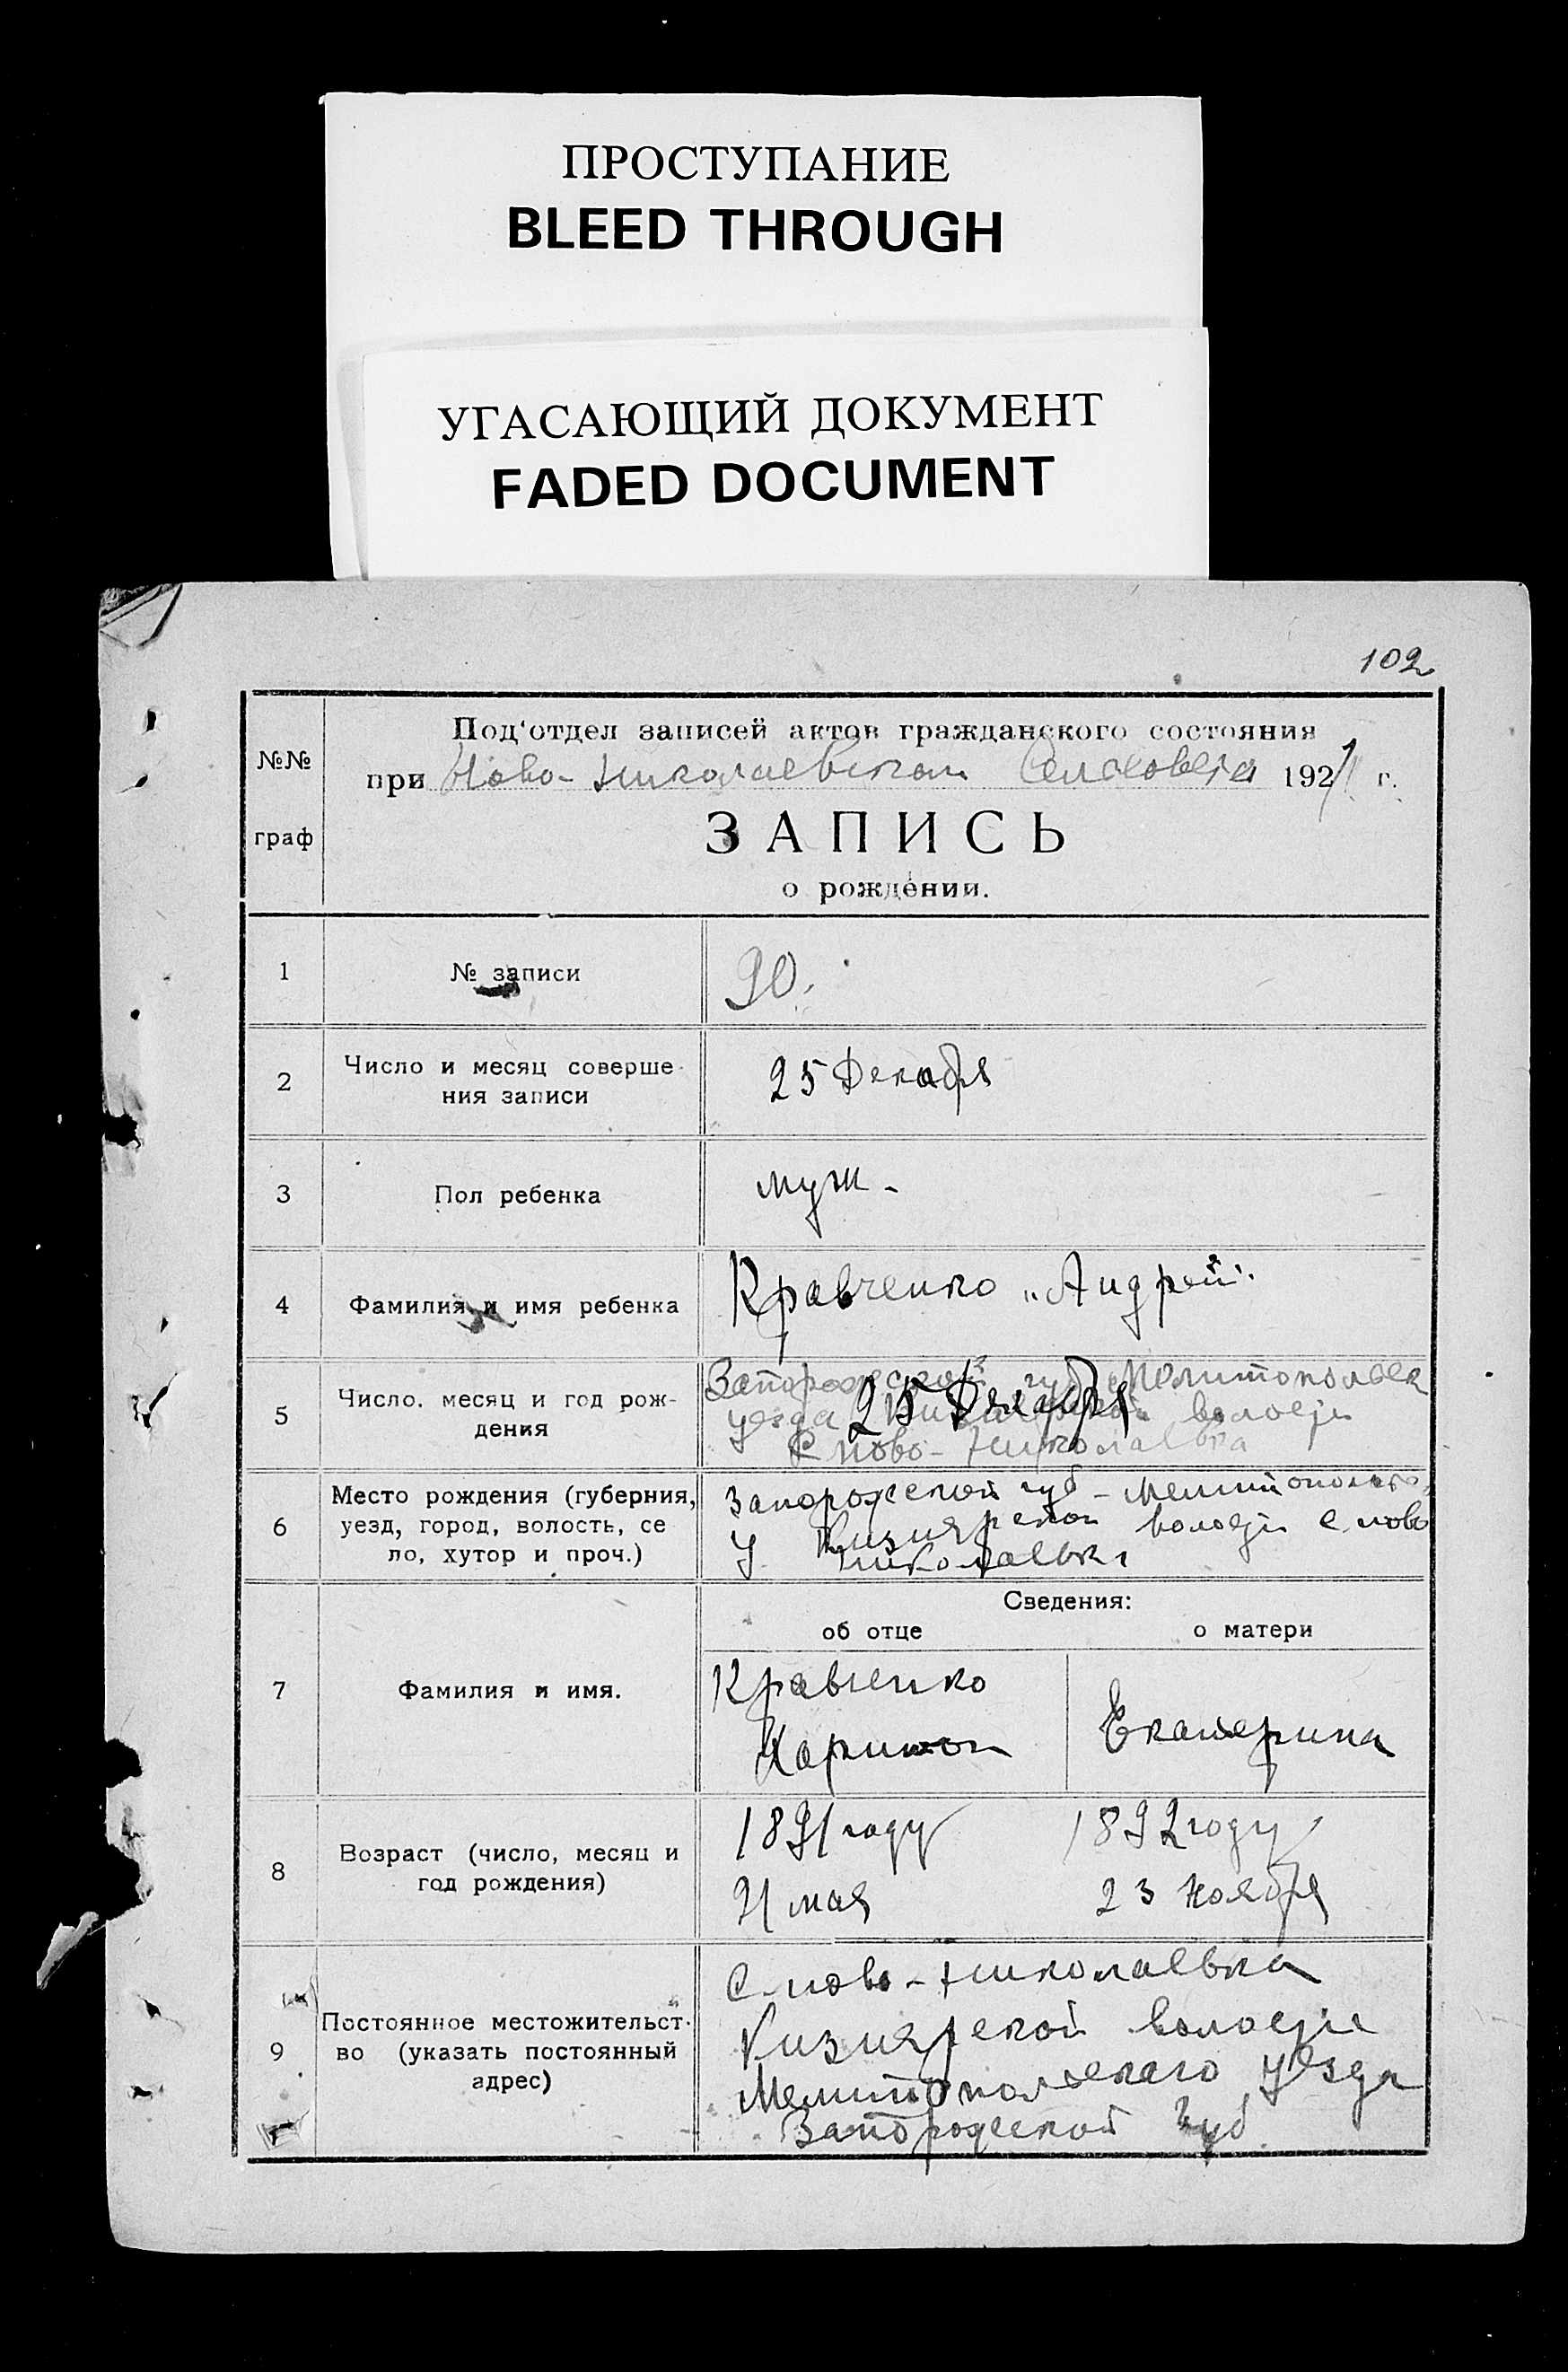 ПРОСТУПАНИЕ
BLEED THROUGH
УГАСАЮЩИЙ ДОКУМЕНТ
FADED DOCUMENT
102
№№
граф
Под'отдел записей актов гражданского состояния
при Ново-Николаевском Сельсовета 1921 г.
ЗАПИСЬ
о рождении.
1 № записи 90.
2 Число и месяц соверше-
ния записи 25 Декабря
3 Пол ребенка муж-
4 Фамилия и имя ребенка Кравченко „Андрей".
5 Число, месяц и год рож-
дения 25 Декабря
Запорожской губ Мелитопольск
уезда волости
с Ново-Николаевка
6 Место рождения (губерния,
уезд, город, волость, се
ло, хутор и проч.)
Запорожской губ-
у Кизиярской волости с. ново
николаевка
Сведения:
об отце о матери
7 Фамилия и имя.
Кравченко
Харитон Екатерина
8 Возраст (число, месяц и
год рождения)
1891 году 1892 году
21 мая 23 Ноября
9 Постоянное местожительст-
во (указать постоянный
адрес)
с-ново-николаевка
Кизиярской волости
Мелитопольскаго уезда
Запорожской губ